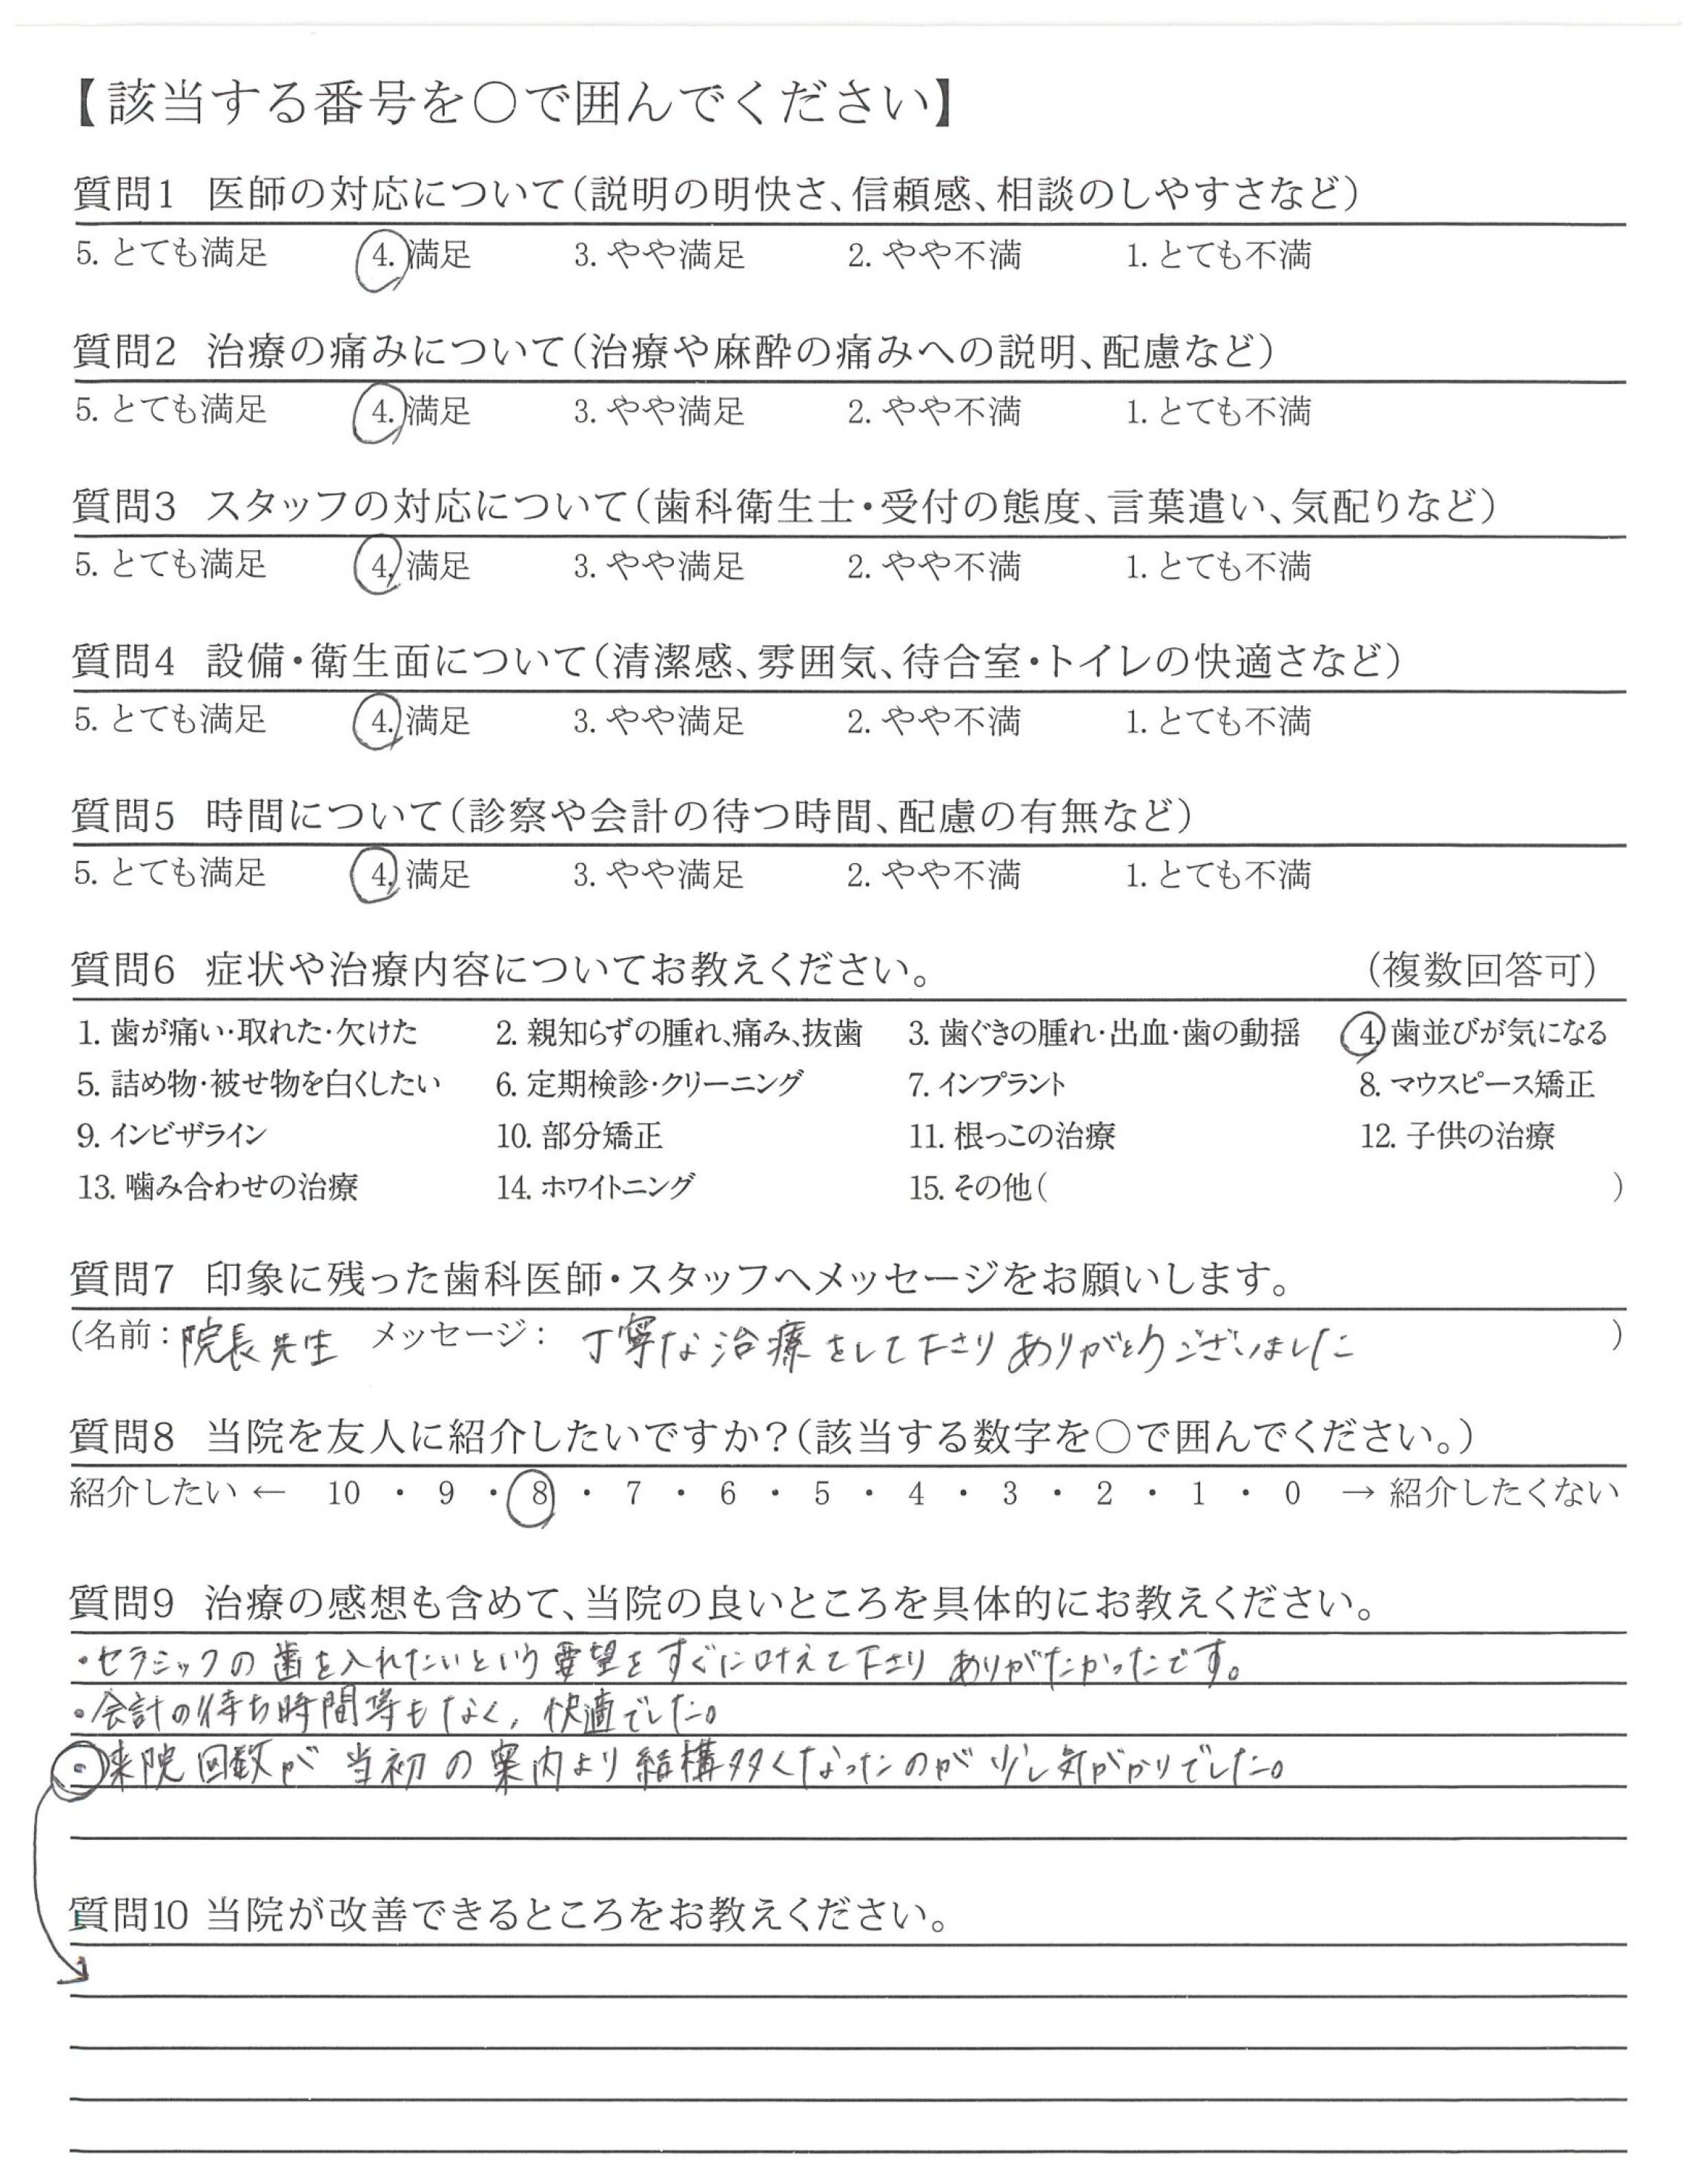 【該当する番号を○で囲んでください】
質問1 医師の対応について(説明の明快さ、信頼感、相談のしやすさなど)
5. とても満足 4. 満足 3. やや満足 2. やや不満 1. とても不満
質問2 治療の痛みについて(治療や麻酔の痛みへの説明、配慮など)
5. とても満足 4. 満足 3. やや満足 2. やや不満 1. とても不満
質問3 スタッフの対応について(歯科衛生士・受付の態度、言葉遣い、気配りなど)
5. とても満足 4. 満足 3. やや満足 2. やや不満 1. とても不満
質問4 設備・衛生面について(清潔感、雰囲気、待合室・トイレの快適さなど)
5. とても満足 4. 満足 3. やや満足 2. やや不満 1. とても不満
質問5 時間について(診察や会計の待つ時間、配慮の有無など)
5. とても満足 4. 満足 3. やや満足 2. やや不満 1. とても不満
質問6 症状や治療内容についてお教えください。 (複数回答可)
1. 歯が痛い・取れた・欠けた 2. 親知らずの腫れ、痛み、抜歯 3. 歯ぐきの腫れ・出血・歯の動揺 4. 歯並びが気になる
5. 詰め物・被せ物を白くしたい 6. 定期検診・クリーニング 7. インプラント 8. マウスピース矯正
9. インビザライン 10. 部分矯正 11. 根っこの治療 12. 子供の治療
13. 噛み合わせの治療 14. ホワイトニング 15. その他( )
質問7 印象に残った歯科医師・スタッフへメッセージをお願いします。
(名前: 院長先生 メッセージ: 丁寧な治療をして下さりありがとうございました )
質問8 当院を友人に紹介したいですか?(該当する数字を○で囲んでください。)
紹介したい ← 10 ・ 9 ・ 8 ・ 7 ・ 6 ・ 5 ・ 4 ・ 3 ・ 2 ・ 1 ・ 0 → 紹介したくない
質問9 治療の感想も含めて、当院の良いところを具体的にお教えください。
・セラミックの歯を入れたいという要望をすぐに叶えて下さりありがたかったです。
・会計の待ち時間等もなく、快適でした。
・来院回数が当初の案内より結構多くなったのが少し気がかりでした。
質問10 当院が改善できるところをお教えください。